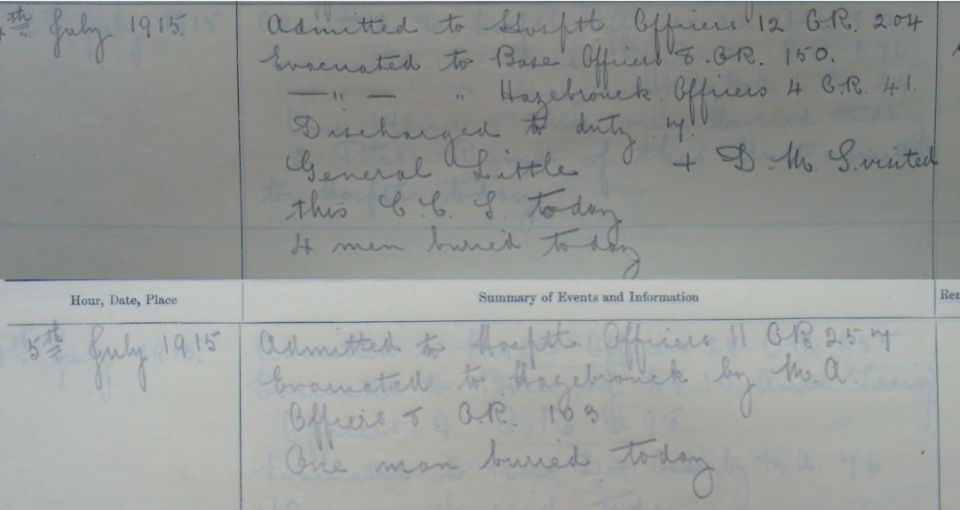 4th July 1915. Admitted to Hospth Officers 12 O.R. 204
Evacuated to Base Officers 8. OR. 150.
—"— " Hazebrouck Officers 4 O.R. 41.
Discharged to duty 7.
General Little + D.M.S. visited
this C.C.S. today
4 men buried today
Hour, Date, Place Summary of Events and Information Rem
5th July 1915 Admitted to Hospth Officers 11 OR. 257
Evacuated to Hazebrouck by M.A.
Officers 8 O.R. 163.
One man buried today